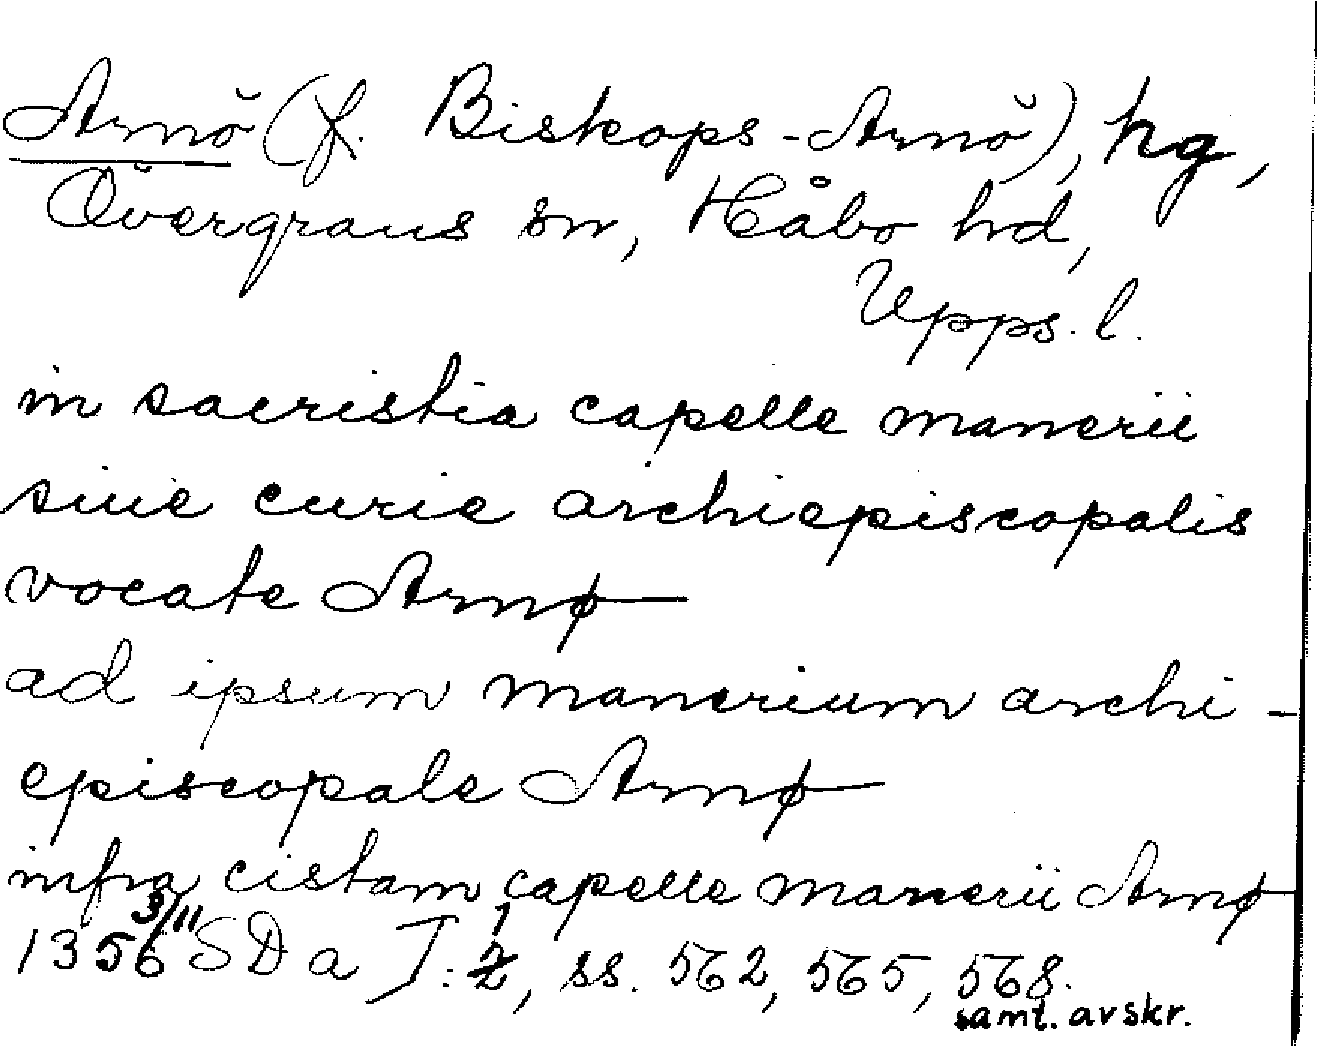 Arnö (f. Biskops-Arnö), hg,
Övergrans sn, Håbo hd,
Upps. l.
in sacristia capelle manerii
siue curie archiepiscopalis
vocate Arnø
ad ipsum manerium archi-
episcopale Arnø
infra cistam capelle manerii Arnø
1356 3/11 SD a I: 1, ss. 562, 565, 568.
samt. avskr.